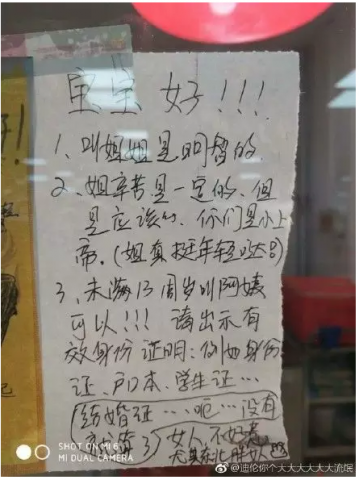 宝宝好!!!
1、叫姐姐是明智的
2、姐辛苦是一定的、但
是应该的、你们是小上
帝。(姐真挺年轻哒!)
3、未满13周岁叫阿姨
可以!!! 请出示有
效身份证明:例如身份
证、户口本、学生证…
(结婚证…呃…没有
女人不好惹
尤其东北胖女人
SHOT ON MI 6
MI DUAL CAMERA
@迪伦你个大大大大大大流氓